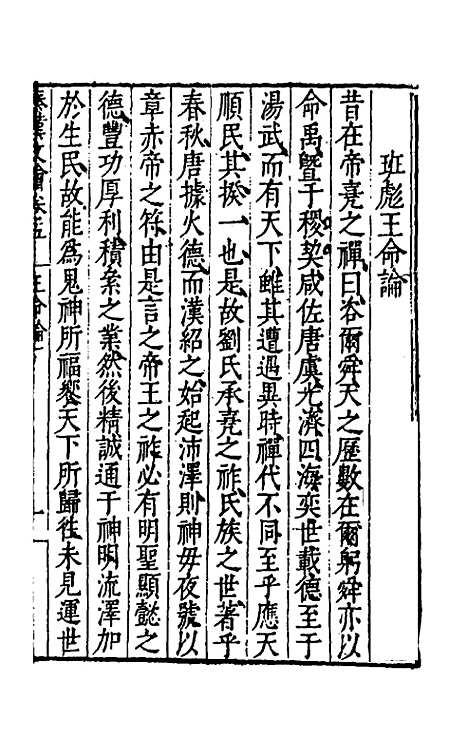 班彪王命論
昔在帝堯之禪曰咨爾舜天之歷數在爾躬舜亦以
命禹暨于稷契咸佐唐虞光濟四海奕世載德至于
湯武而有天下雖其遭遇異時禪代不同至乎應天
順民其揆一也是故劉氏承堯之祚氏族之世著乎
春秋唐據火德而漢紹之始起沛澤則神毋夜號以
章赤帝之符由是言之帝王之祚必有明聖顯懿之
德豐功厚利積絫之業然後精誠通于神明流澤加
於生民故能爲鬼神所福饗天下所歸徃未見運世
卷五 王命論 一